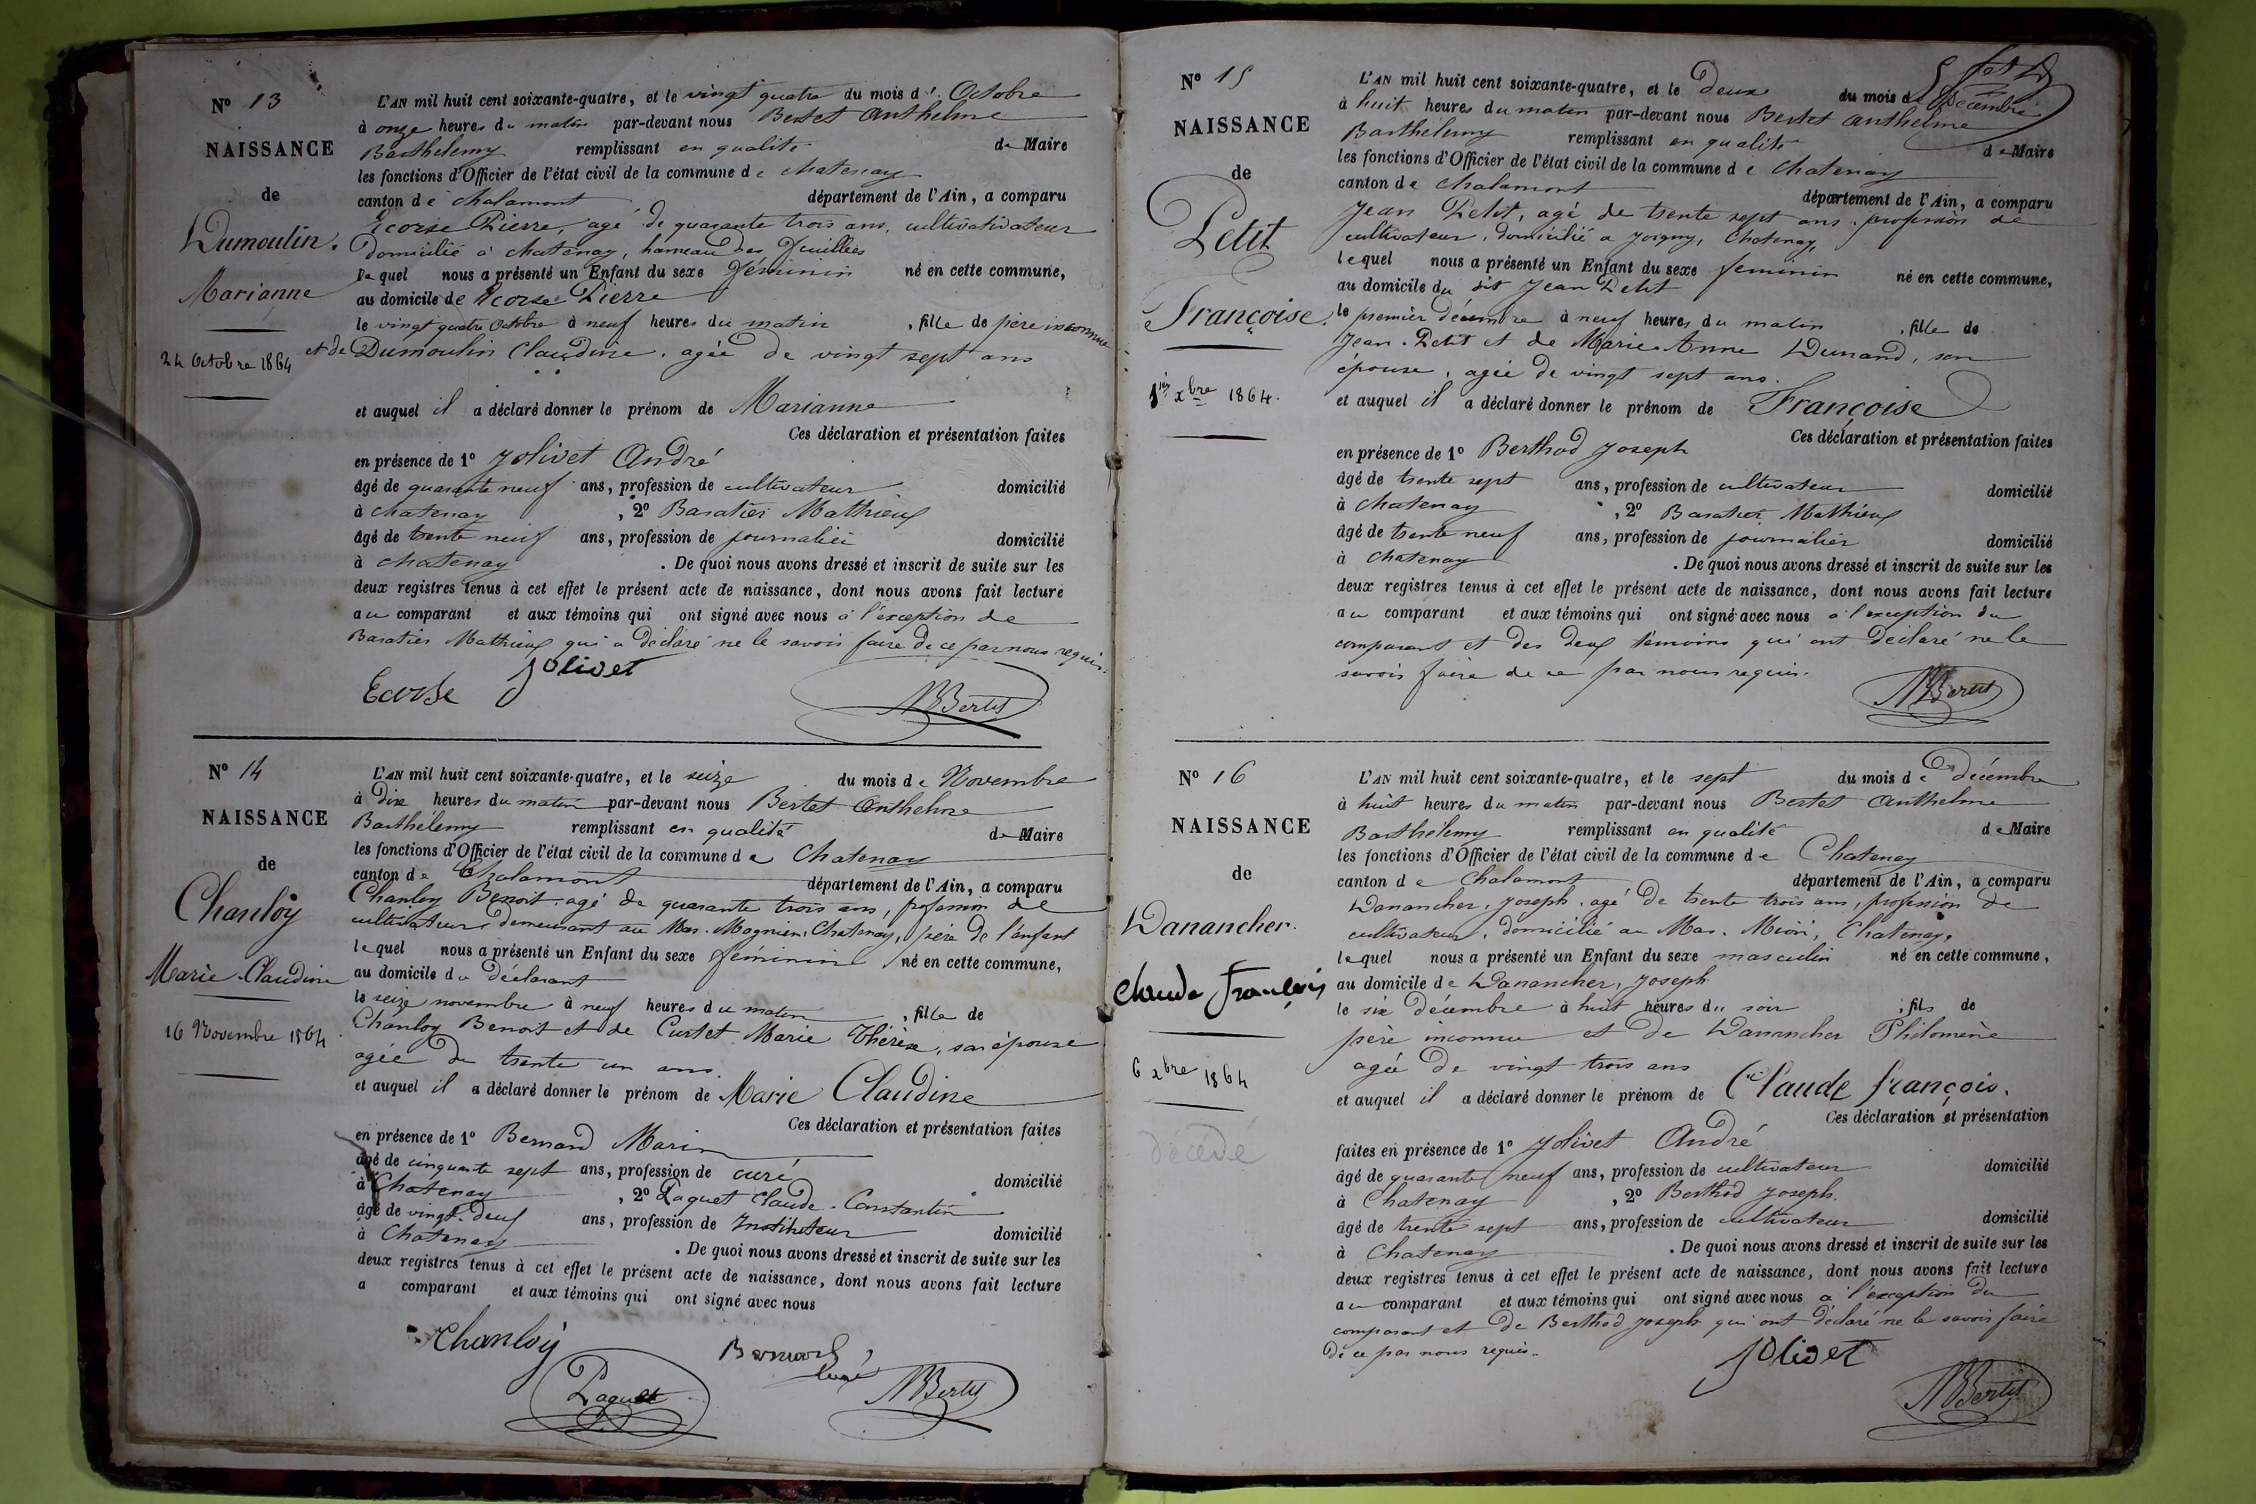 N° 13
NAISSANCE
de
Dumoulin.
Marianne
24 Octobre 1864
L'AN mil huit cent soixante-quatre, et le vingt quatre du mois d' Octobre
à onze heures du matin par-devant nous Bertet Anthelme
Barthélemy remplissant en qualité de Maire
les fonctions d'Officier de l'état civil de la commune de Chatenay
canton de Chalamont département de l'Ain, a comparu
Ecorse Pierre, agé de quarante trois ans, cultivativateur
domicilié à chatenay, hameau des
lequel nous a présenté un Enfant du sexe féminin né en cette commune,
au domicile de Ecorse Pierre
le vingt quatre Octobre à neuf heures du matin, fille de père inconnu
et de Dumoulin Claudine. agée de vingt sept ans
et auquel il a déclaré donner le prénom de Marianne
Ces déclaration et présentation faites
en présence de 1° Jolivet André
âgé de quarante neuf ans, profession de cultivateur domicilié
à chatenay, 2° Baratier Mathieu
âgé de trente neuf ans, profession de journalier domicilié
à chatenay. De quoi nous avons dressé et inscrit de suite sur les
deux registres tenus à cet effet le présent acte de naissance, dont nous avons fait lecture
au comparant et aux témoins qui ont signé avec nous à l'exception de
Baratier Mathieu qui a déclaré ne le savoir faire de ce par nous requis.
Ecorse Jolivet
Bertet
N° 14
NAISSANCE
de
Chanloy
Marie-Claudine
16 Novembre 1864
L'AN mil huit cent soixante-quatre, et le seize du mois de Novembre
à dix heures du matin par-devant nous Bertet Anthelme
Barthélemy remplissant en qualité de Maire
les fonctions d'Officier de l'état civil de la commune de Chatenay
canton de Chalamont département de l'Ain, a comparu
Chanloy Benoit agé de quarante trois ans, profession de
cultivateur demeurant au Mas. Mognier, Chatenay, père de l'enfant
lequel nous a présenté un Enfant du sexe féminin né en cette commune,
au domicile du déclarant
le seize novembre à neuf heures du matin, fille de
Chanloy Benoit et de Curtet Marie Thérèse, son épouse
agée de trente un ans.
et auquel il a déclaré donner le prénom de Marie Claudine
Ces déclaration et présentation faites
en présence de 1° Bernard Marin
âgé de cinquante sept ans, profession de curé domicilié
à Chatenay, 2° Paquet Claude-Constantin
âgé de vingt-deux ans, profession de Instituteur domicilié
à Chatenay. De quoi nous avons dressé et inscrit de suite sur les
deux registres tenus à cet effet le présent acte de naissance, dont nous avons fait lecture
a comparant et aux témoins qui ont signé avec nous
Chanloy Bernard,
curé
Paquet Bertet
N° 15
NAISSANCE
de
Petit
Françoise.
1ier xbre 1864.
L'AN mil huit cent soixante-quatre, et le deux du mois de Décembre
à huit heures du matin par-devant nous Bertet Anthelme
Barthélemy remplissant en qualité de Maire
les fonctions d'Officier de l'état civil de la commune de Chatenay
canton de Chalamont département de l'Ain, a comparu
Jean Petit, agé de trente sept ans. profession de
cultivateur, domicilié a Joigny, Chatenay,
lequel nous a présenté un Enfant du sexe feminin né en cette commune,
au domicile du dit Jean Petit
le premier décembre à neuf heures du matin, fille de
Jean Petit et de Marie-Anne Dunand, son
épouse, agée de vingt sept ans.
et auquel il a déclaré donner le prénom de Françoise
Ces déclaration et présentation faites
en présence de 1° Berthod Joseph
âgé de trente sept ans, profession de cultivateur domicilié
à Chatenay, 2° Baratier Mathieu
âgé de trente neuf ans, profession de journalier domicilié
à Chatenay. De quoi nous avons dressé et inscrit de suite sur les
deux registres tenus à cet effet le présent acte de naissance, dont nous avons fait lecture
au comparant et aux témoins qui ont signé avec nous à l'exception du
comparant et des deux témoins qui ont déclaré ne le
savoir faire de ce par nous requis.
Bertet
N° 16
NAISSANCE
de
Danancher.
Claude François
6 xbre 1864
décédé
L'AN mil huit cent soixante-quatre, et le sept du mois de décembre
à huit heures du matin par-devant nous Bertet Anthelme
Barthélemy remplissant en qualité de Maire
les fonctions d'Officier de l'état civil de la commune de Chatenay
canton de Chalamont département de l'Ain, a comparu
Danancher, Joseph. agé de trente trois ans, profession de
cultivateur, domicilié au Mas. Mion, Chatenay.
lequel nous a présenté un Enfant du sexe masculin né en cette commune,
au domicile de Danancher, Joseph
le six décembre à huit heures du soir, fils de
père inconnu et de Danancher Philomène
agée de vingt trois ans
et auquel il a déclaré donner le prénom de Claude françois.
Ces déclaration et présentation
faites en présence de 1° Jolivet André
âgé de quarante neuf ans, profession de cultivateur domicilié
à Chatenay, 2° Berthod Joseph.
âgé de trente sept ans, profession de cultivateur domicilié
à Chatenay. De quoi nous avons dressé et inscrit de suite sur les
deux registres tenus à cet effet le présent acte de naissance, dont nous avons fait lecture
au comparant et aux témoins qui ont signé avec nous à l'exception du
comparant et de Berthod Joseph qui ont déclaré ne le savoir faire
de ce par nous requis.
Jolivet
Bertet